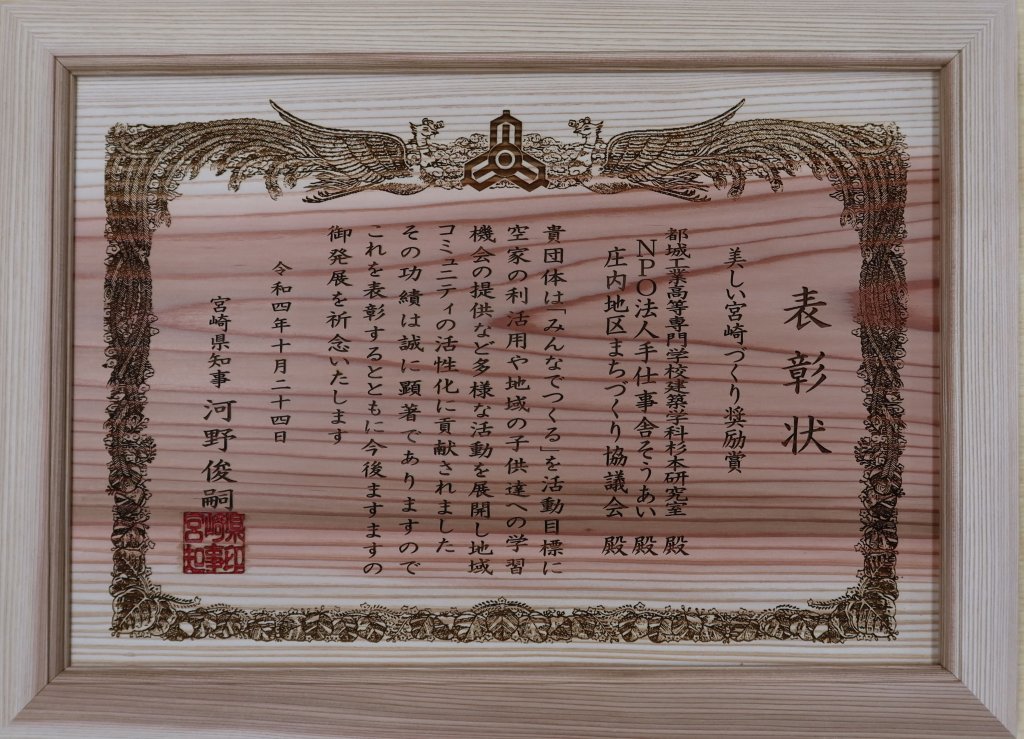 表彰状
美しい宮崎づくり奨励賞
都城工業高等専門学校建築学科杉本研究室 殿
NPO法人手仕事舎そうあい 殿
庄内地区まちづくり協議会 殿
貴団体は「みんなでつくる」を活動目標に
空家の利活用や地域の子供達への学習
機会の提供など多様な活動を展開し地域
コミュニティの活性化に貢献されました
その功績は誠に顕著でありますので
これを表彰するとともに今後ますますの
御発展を祈念いたします
令和四年十月二十四日
宮崎県知事 河野俊嗣
宮崎県知事印